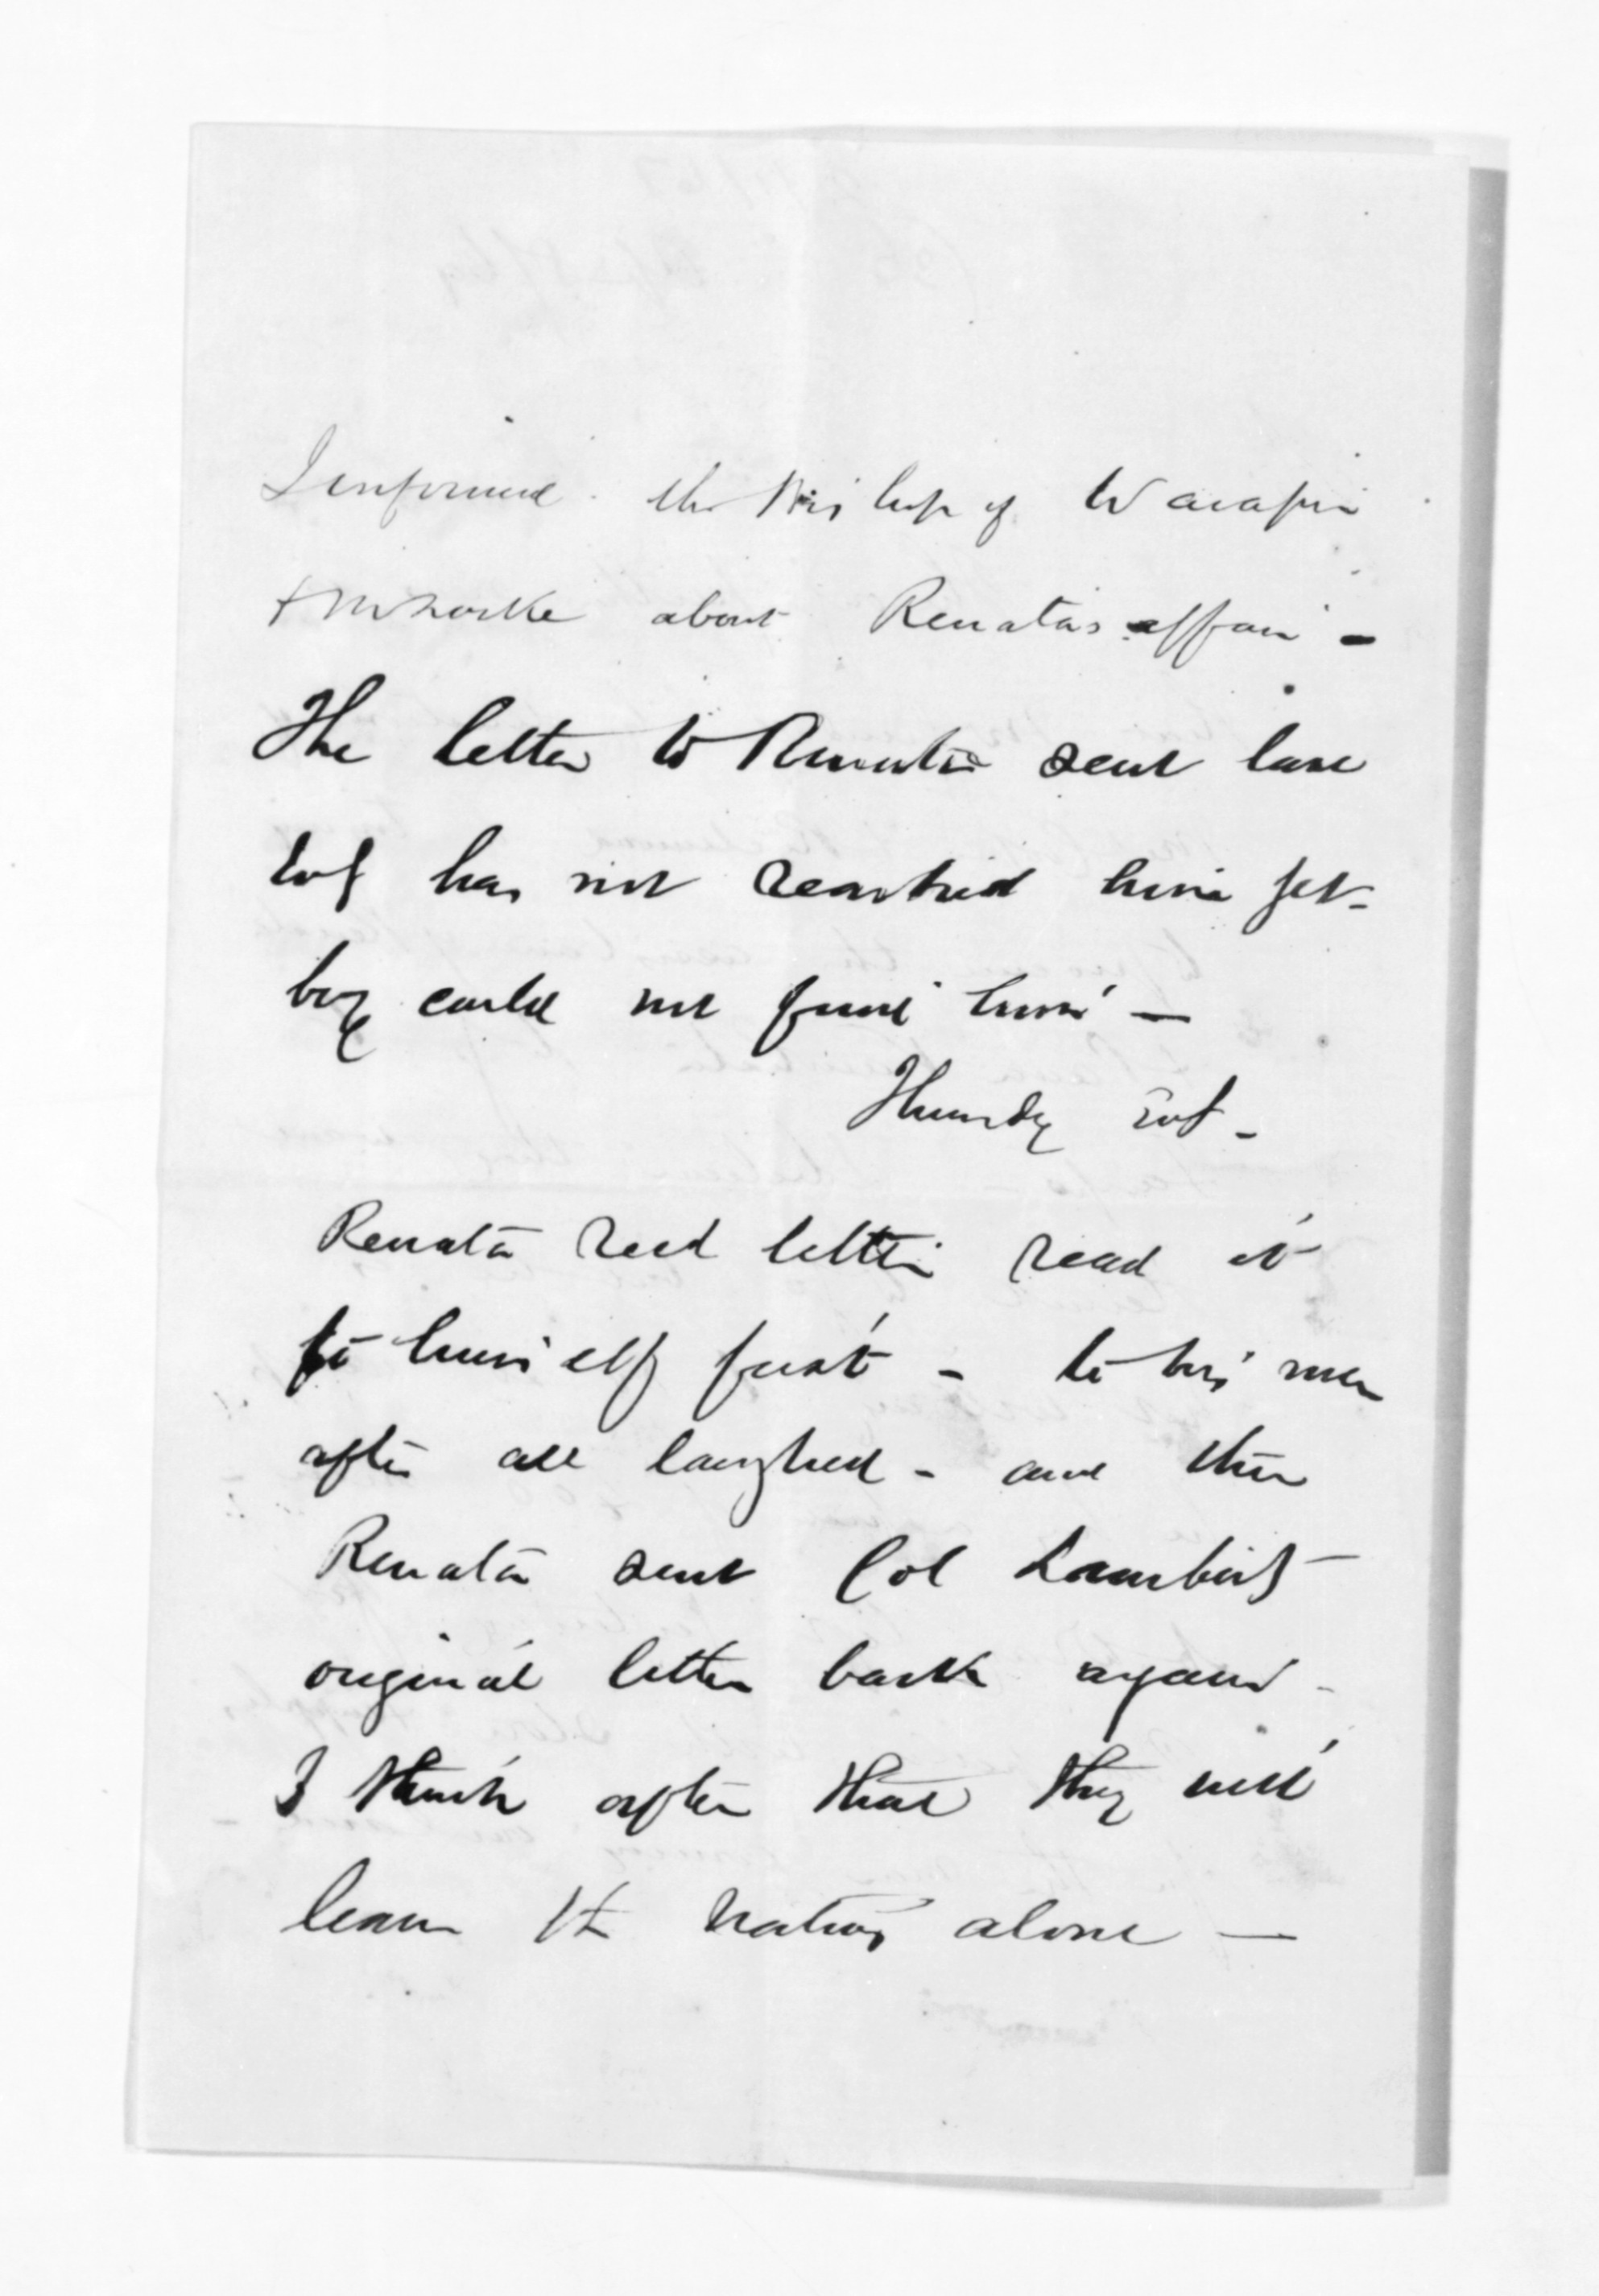 I informed the Bishop of Waiapu
about Renata's affair -
The letter to Renata sent last
has not reached him yet -
boy could not find him -
Thursday
Renata recd letter read it
to himself first - to his men
after all laughed - and then
Renata sent Col Lambert
original letter back again -
I think after that they will
leave the natives alone -